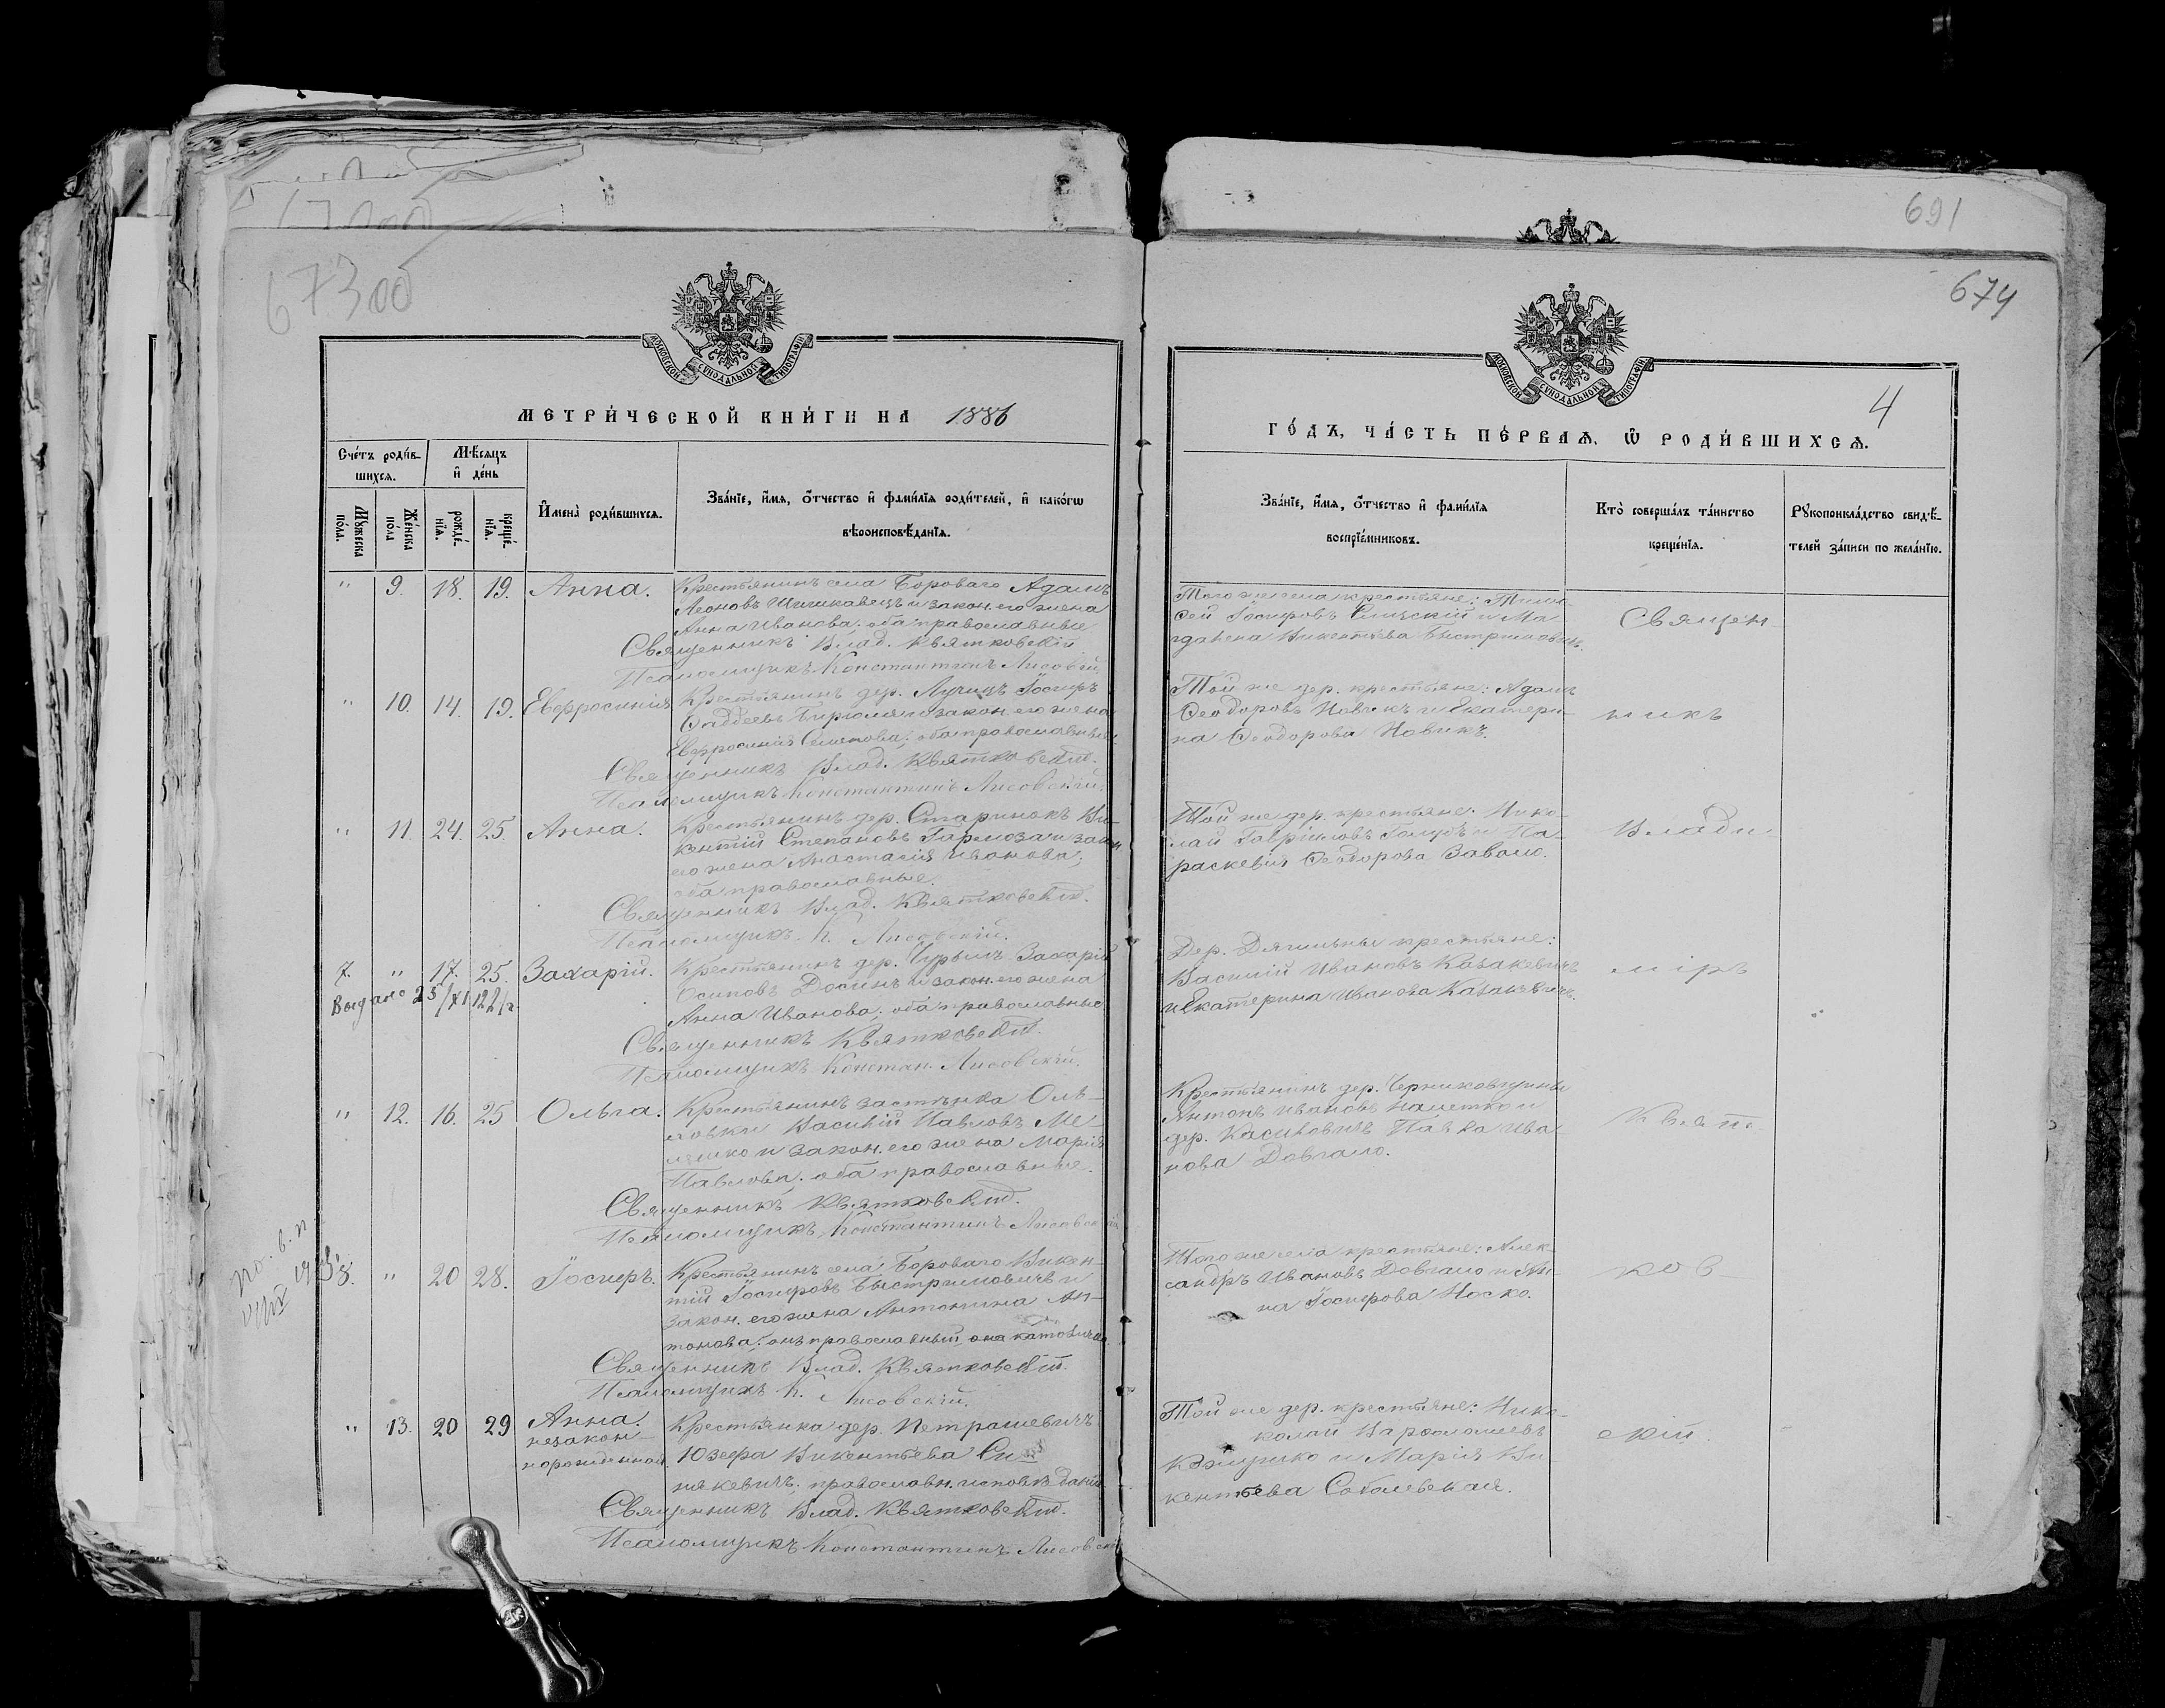 691
67300
674
МОСКОВСКОЙ СѴНОДАЛЬНОЙ ТИПОГРАФІИ
МОСКОВСКОЙ СѴНОДАЛЬНОЙ ТИПОГРАФІИ
4
МЕТРИ́ЧЕСКОЙ КНИ́ГИ НА 1886
ГО́ДЪ, ЧА́СТЬ ПЕ́РВАѦ, Ѽ РОДИ́ВШИХСѦ.
Сче́тъ роди́вшихсѧ.
Мѣ́сяцъ и҆ де́нь
Мꙋ́жеска по́ла.
Же́нска по́ла
рожде́нїѧ.
креще́нїѧ.
И҆мена̀ роди́вшихсѧ.
Зва́нїе, и҆́мѧ, ѻ҆́тчество и҆ фами́лїѧ роди́телей, и҆ како́гѡ
вѣроисповѣ́данїѧ.
Зва́нїе, и҆́мѧ, ѻ҆́тчество и҆ фами́лїѧ
воспрїе́мниковъ.
Кто̀ соверша́лъ та́инство
креще́нїѧ.
Рꙋкоприкла́дство свидѣ́-
телей за́писи по жела́нїю.
" 9. 18. 19. Анна.
Крестьянинъ села Бороваго Адамъ
Леоновъ Шишкавецъ и закон. его жена
Анна Иванова; оба православные
Священникъ Влад. Квятковскій
Псаломщикъ Константинъ Лисовскій
Того же села крестьяне: Тимо-
ѳей Іосифовъ и Ма-
гдалена Викентьева Быстримовичъ.
Священ-
" 10. 14. 19. Евфросинія
Крестьянинъ дер. Лучицъ Іосифъ
Ѳаддеевъ Бирюля и закон. его жена
Евфросинія Семенова; оба православные.
Священникъ Влад. Квятковскій.
Псаломщикъ Константинъ Лисовскій.
Той же дер. крестьяне: Адамъ
Ѳеодоровъ Новикъ и Екатери-
на Ѳеодорова Новикъ.
никъ
" 11. 24. 25. Анна.
Крестьянинъ дер. Старинокъ Ви-
кентій Степановъ Гармоза и закон
его жена Анастасія Иванова;
оба православные.
Священникъ Влад. Квятковскій.
Псаломщикъ К. Лисовскій.
Той же дер. крестьяне: Нико-
лай Гавріиловъ и Па-
раскевія Ѳеодорова Завало.
Влади-
7. " 17. 25. Захарій.
Выдано 23/XI 1922 г.
Крестьянинъ дер. Чурилъ Захарій
Осиповъ Досинъ и закон. его жена
Анна Иванова; оба православные
Священникъ Квятковскій.
Псаломщикъ Констан. Лисовскій.
Дер. Дягильны крестьяне:
Василій Ивановъ Казакевичъ
и Екатерина Иванова Казакевичъ.
міръ
" 12. 16. 25 Ольга.
Крестьянинъ застѣнка Оль-
ховки Василій Павловъ Ме-
лешко и закон. его жена Марія
Павлова; оба православные.
Священникъ Квятковскій.
Псаломщикъ Константинъ Лисовскій
Крестьянинъ дер. Черниковщины
Антонъ Ивановъ и
дер. Касиловичъ Павла Ива-
нова Довгало.
Квят-
8. " 20 28. Іосифъ.
Крестьянинъ села Бороваго Викен-
тій Іосифовъ Быстримовичъ и
закон. его жена Антонина Ан-
тонова; онъ православный, она католичка.
Священникъ Влад. Квятковскій.
Псаломщикъ К. Лисовскій.
Того же села крестьяне: Алек-
сандръ Ивановъ Довгало и Ан-
на Іосифова Носко.
ков-
" 13. 20 29 Анна.
незакон-
норожденная.
Крестьянка дер. Петрашевичъ
Юзефа Викентьева Си-
някевичъ, православн. исповѣданія
Священникъ Влад. Квятковскій.
Псаломщикъ Константинъ Лисовскій
Той же дер. крестьяне: Нико-
лай Варѳоломеевъ
и Марія Ви-
кентьева Соболевская.
скій.